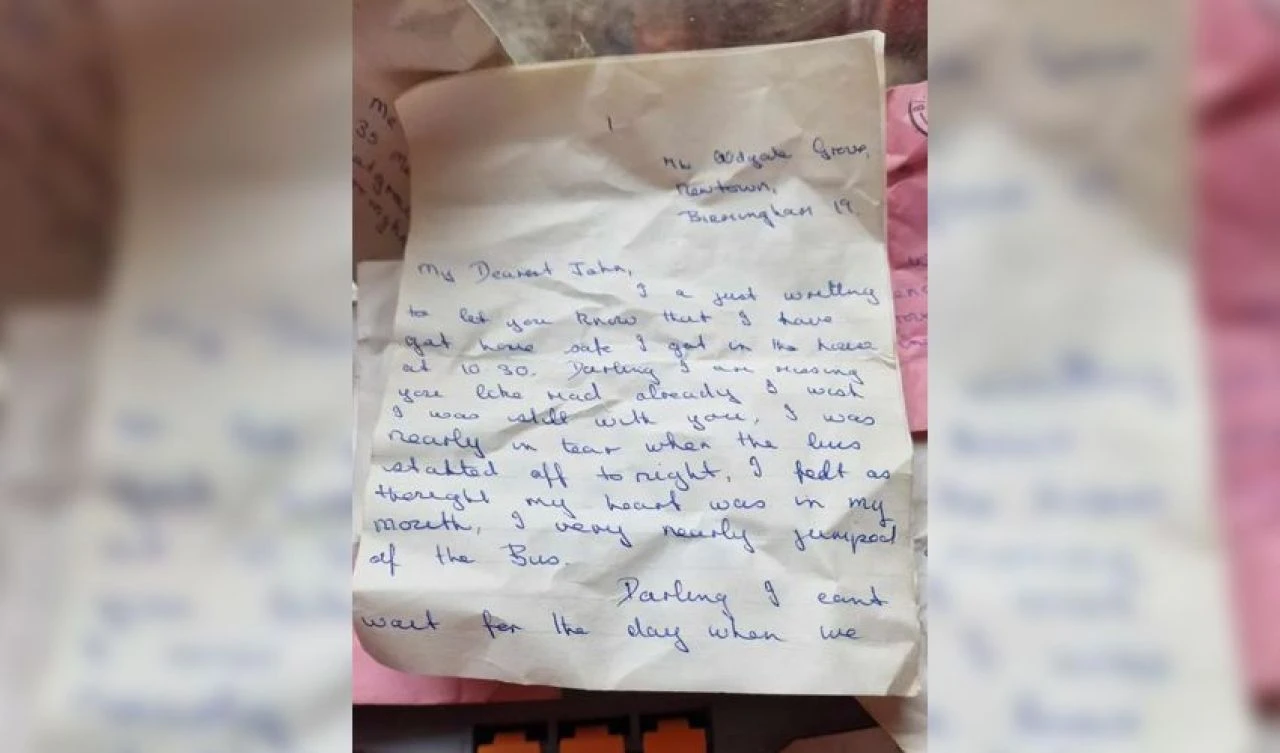 1
Aldgate Grove,
Newtown,
Birmingham 19.
My Dearest John,
I a just writting
to let you know that I have
got home safe I got in the house
at 10 30. Darling I am missing
you like mad already I wish
I was still with you, I was
nearly in tear when the bus
statted off to night, I fedt as
thought my heart was in my
mouth, I very nearly jumped
of the Bus.
Darling I cant
wait for the day when we